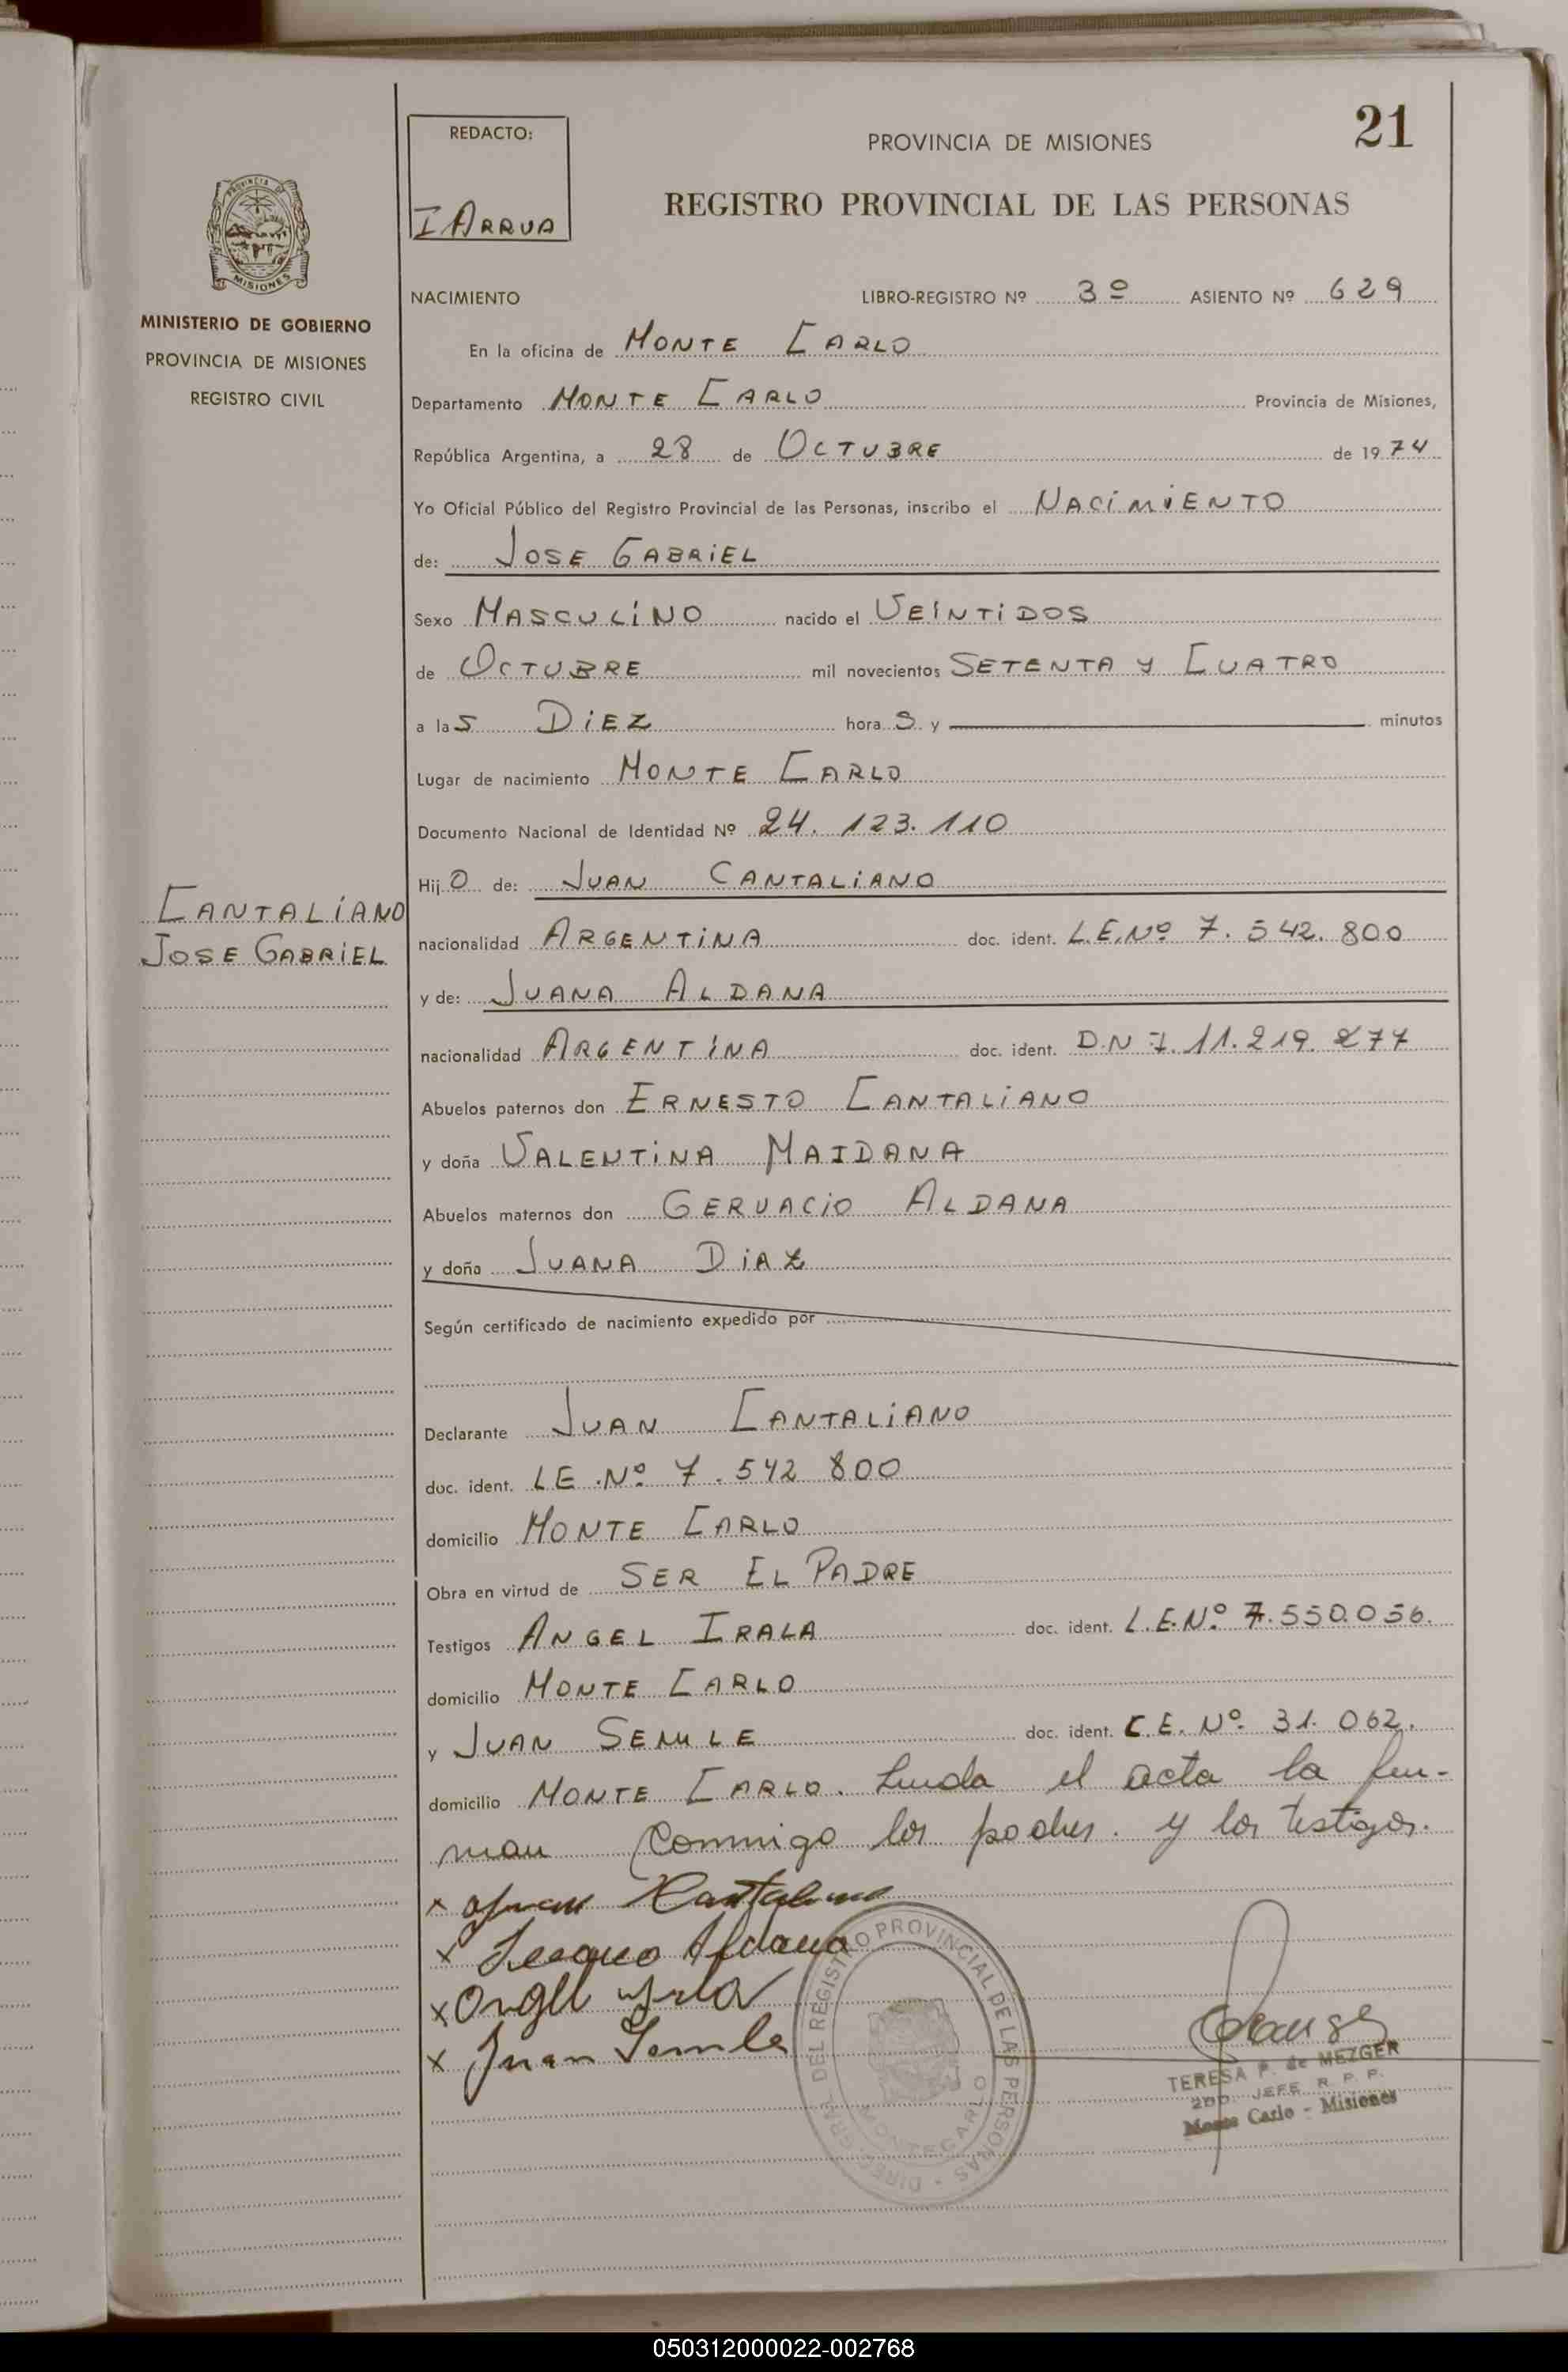 21
REDACTO:
I ARRUA
PROVINCIA DE MISIONES
REGISTRO PROVINCIAL DE LAS PERSONAS
MISIONES
MINISTERIO DE GOBIERNO
PROVINCIA DE MISIONES
REGISTRO CIVIL
NACIMIENTO LIBRO-REGISTRO Nº 3º ASIENTO Nº 629
En la oficina de MONTE CARLO
Departamento MONTE CARLO Provincia de Misiones,
República Argentina, a 28 de OCTUBRE de 1974
Yo Oficial Público del Registro Provincial de las Personas, inscribo el NACIMIENTO
de: JOSE GABRIEL
Sexo MASCULINO nacido el VEINTIDOS
de OCTUBRE mil novecientos SETENTA Y CUATRO
a las DIEZ horas y minutos
Lugar de nacimiento MONTE CARLO
Documento Nacional de Identidad Nº 24.123.110
Hijo de: JUAN CANTALIANO
CANTALIANO
JOSE GABRIEL
nacionalidad ARGENTINA doc. ident. L.E.Nº 7.542.800
y de: JUANA ALDANA
nacionalidad ARGENTINA doc. ident. D.N.I. 11.219.277
Abuelos paternos don ERNESTO CANTALIANO
y doña VALENTINA MAIDANA
Abuelos maternos don GERVACIO ALDANA
y doña JUANA DIAZ
Según certificado de nacimiento expedido por
Declarante JUAN CANTALIANO
doc. ident. LE.Nº 7.542 800
domicilio MONTE CARLO
Obra en virtud de SER EL PADRE
Testigos ANGEL IRALA doc. ident. L.E.Nº 7.550.056.
domicilio MONTE CARLO
y JUAN SEMLE doc. ident. C.E. Nº 31.062.
domicilio MONTE CARLO. Leida el acta la fir-
man conmigo los padres y los testigos.
x Juan Cantaliano
x Juana Aldana
x Angel Irala
x Juan Semle
DIREC. GRAL. DEL REGISTRO PROVINCIAL DE LAS PERSONAS
MONTECARLO
TERESA F. de MEZGER
2DO. JEFE R. P. P.
Monte Carlo - Misiones
050312000022-002768